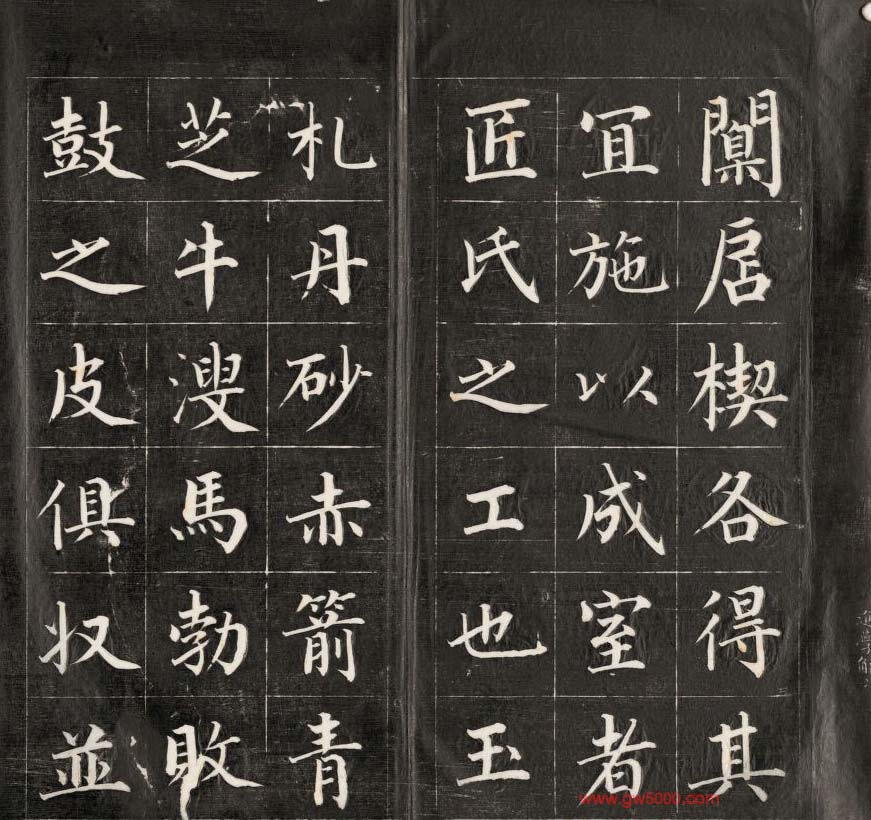 闑扂楔各得其
宜施以成室者
匠氏之工也玉
札丹砂赤箭青
芝牛溲馬勃敗
鼓之皮俱收並
www.gw5000.com